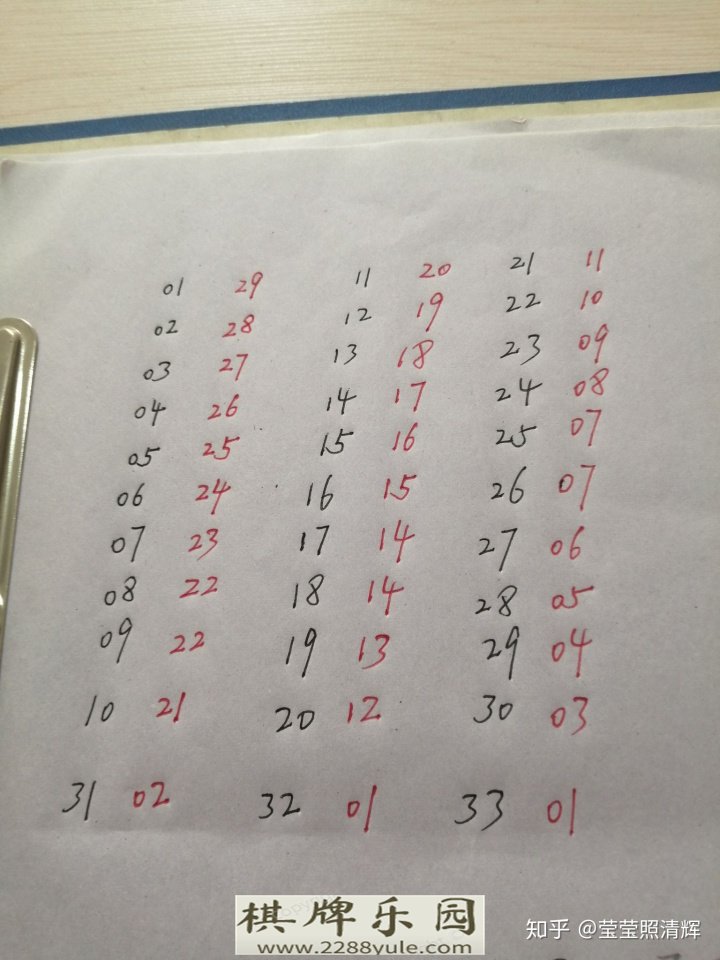 01 29 11 20 21 11
02 28 12 19 22 10
03 27 13 18 23 09
04 26 14 17 24 08
05 25 15 16 25 07
06 24 16 15 26 07
07 23 17 14 27 06
08 22 18 14 28 05
09 22 19 13 29 04
10 21 20 12 30 03
31 02 32 01 33 01
棋牌乐园
www.2288yule.com
知乎 @莹莹照清辉